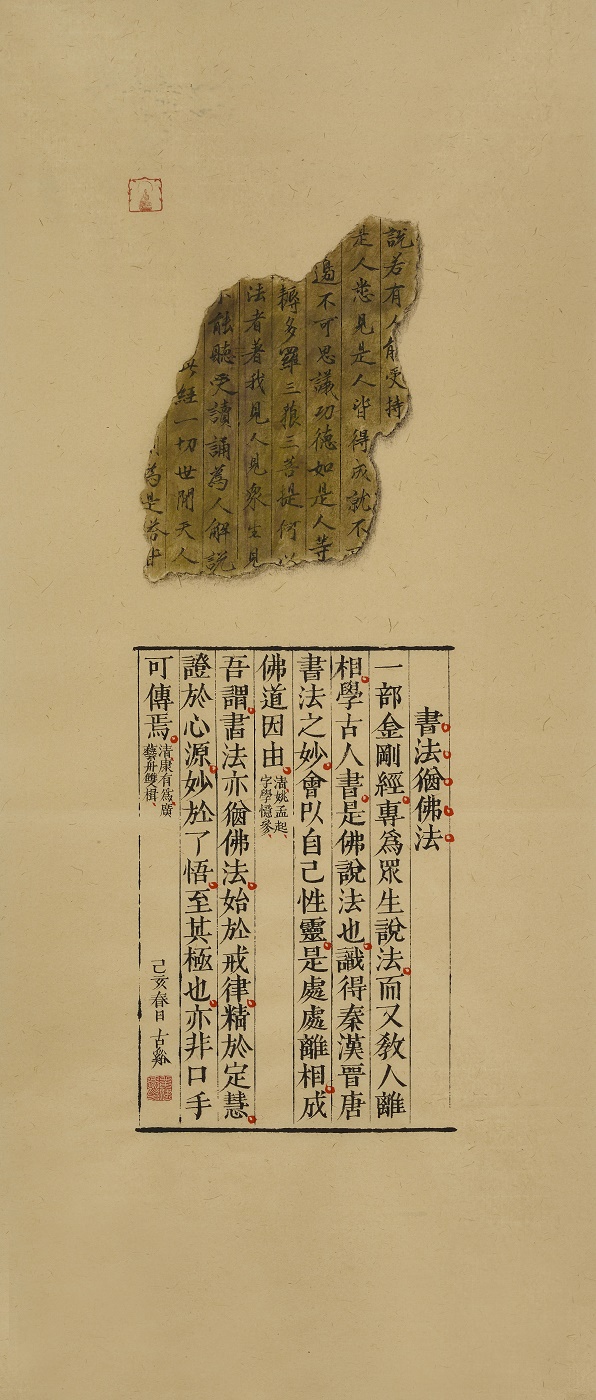 說若有人能受持
是人悉見是人皆得成就不可
邊不可思議功德如是人等
耨多羅三藐三菩提何以
法者著我見人見眾生見
不能聽受讀誦為人解說
此經一切世間天人
為是荅中
書法猶佛法
一部金剛經專爲眾生說法而又教人離
相學古人書是佛說法也識得秦漢晉唐
書法之妙會以自己性靈是處處離相成
佛道因由
清姚孟起、
字學憶參、
吾謂書法亦猶佛法始於戒律精於定慧
證於心源妙於了悟至其極也亦非口手
可傳焉
清康有爲廣
藝舟雙楫
己亥春日 古谿